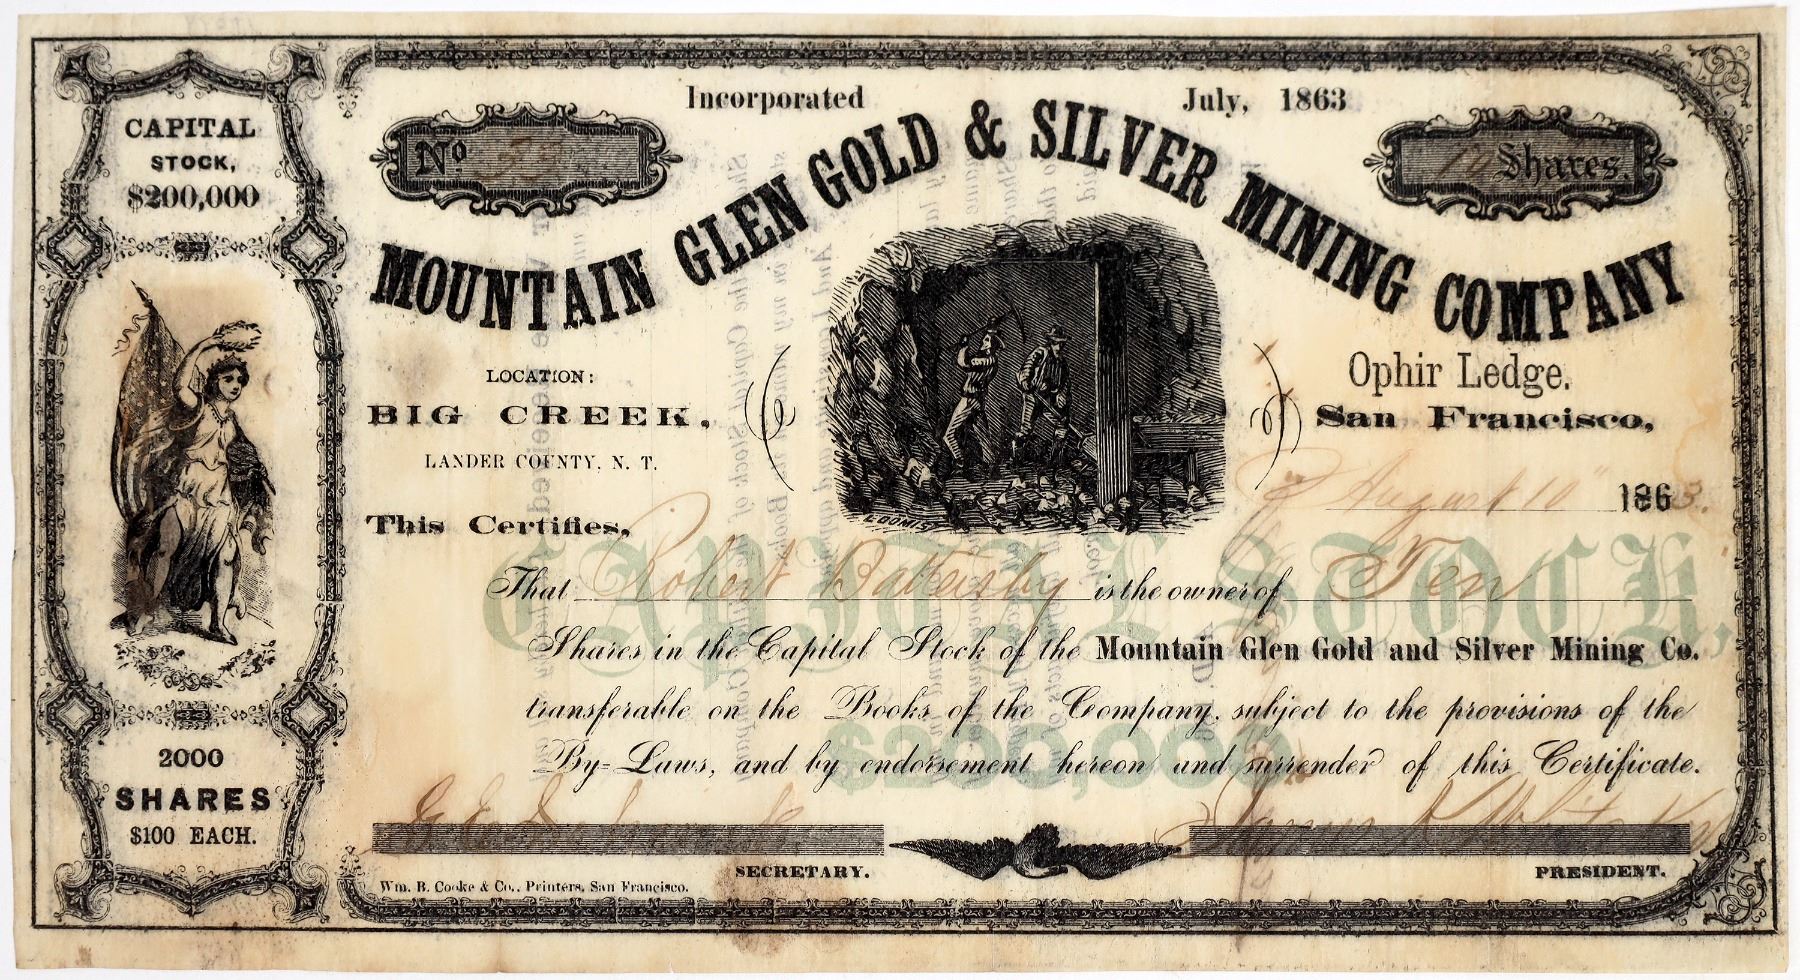 CAPITAL
STOCK,
$200,000
2000
SHARES
$100 EACH.
Incorporated July, 1863
No
10 Shares.
MOUNTAIN GLEN GOLD & SILVER MINING COMPANY
LOCATION:
BIG CREEK,
LANDER COUNTY, N. T.
LOOMIS
Ophir Ledge.
San Francisco,
August 10" 1863.
This Certifies,
CAPITAL STOCK,
That Robert Battersby is the owner of Ten
Shares in the Capital Stock of the Mountain Glen Gold and Silver Mining Co.
transferable on the Books of the Company, subject to the provisions of the
$200,000
By-Laws, and by endorsement hereon and surrender of this Certificate.
SECRETARY.
James
PRESIDENT.
Wm. B. Cooke & Co., Printers, San Francisco.